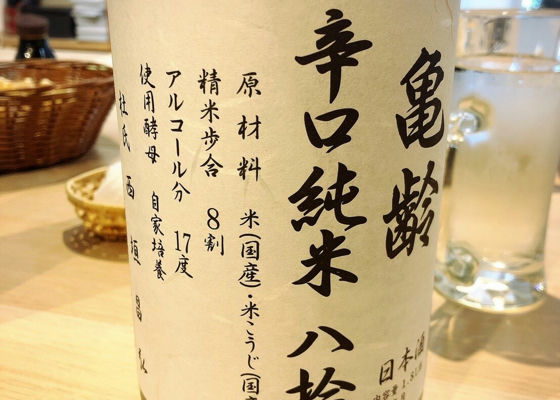 亀齢
辛口純米 八拾
原材料 米(国産)・米こうじ(国産
精米歩合 8割
アルコール分 17度
使用酵母 自家培養
杜氏 西垣昌弘
日本酒
内容量 1.8L